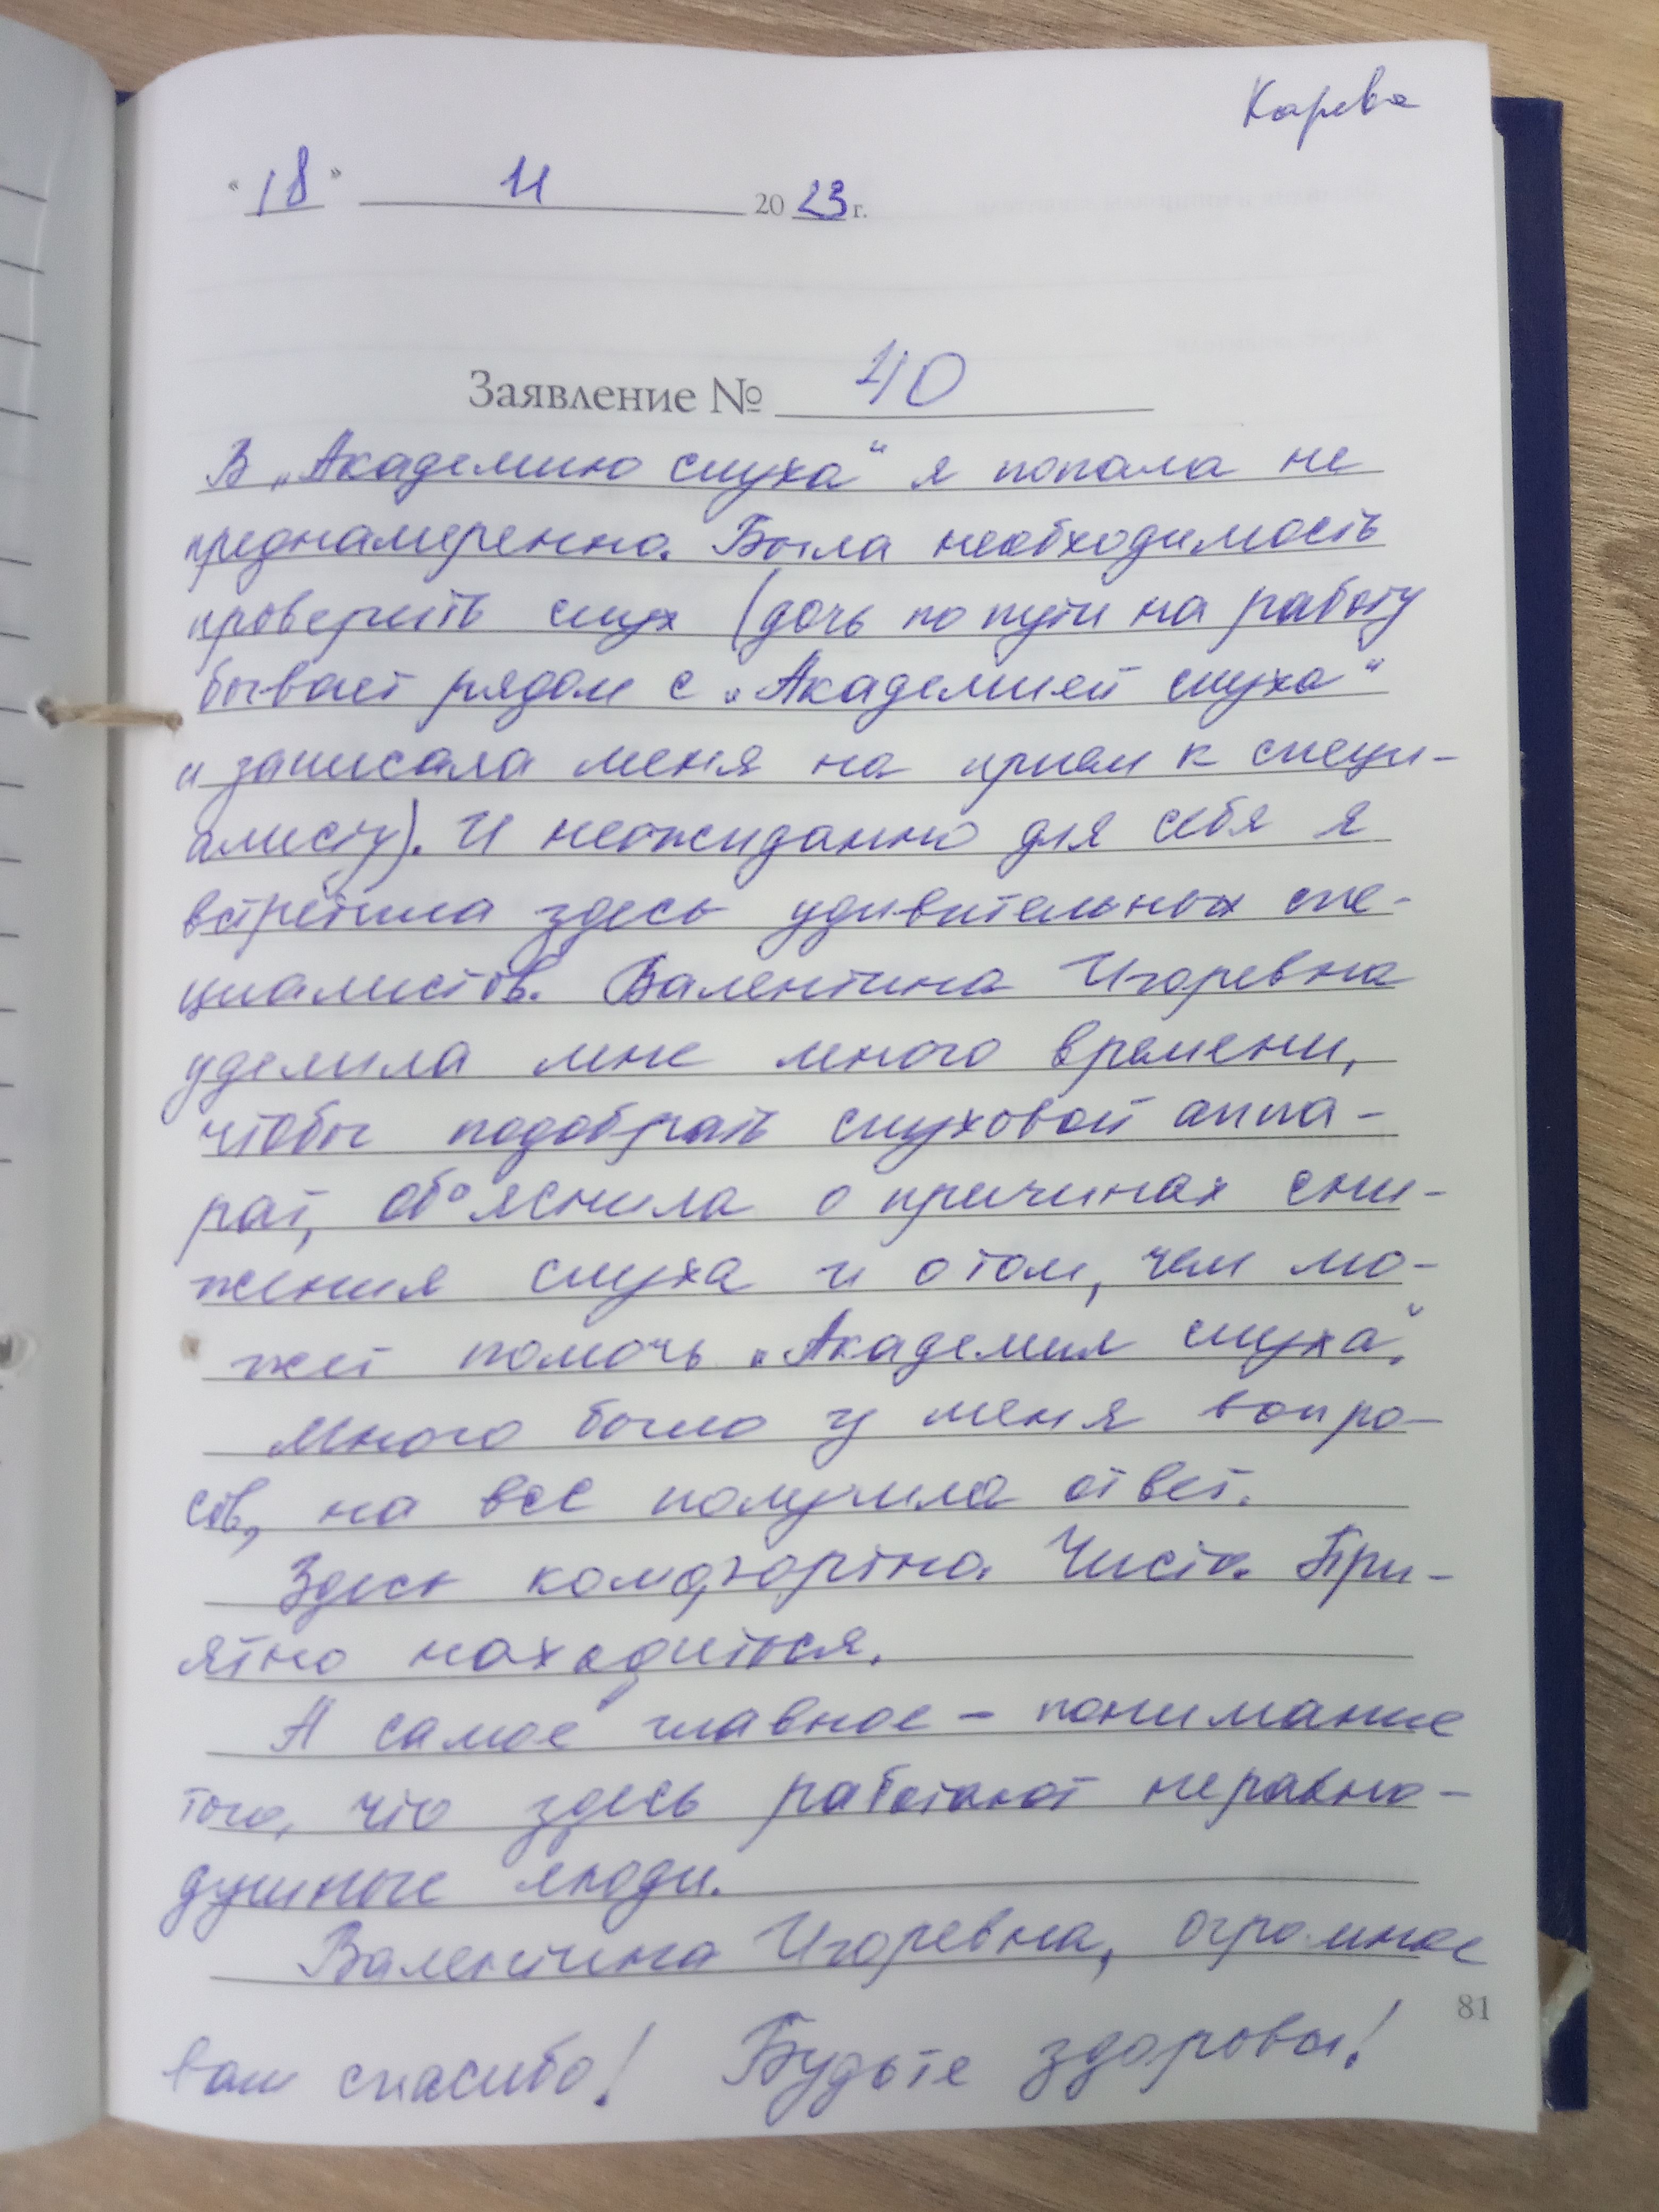 Карева
"18" 11 2023 г.
Заявление № 40
В „Академию слуха“ я попала не
преднамеренно. Была необходимость
проверить слух (дочь по пути на работу
бывает рядом с „Академией слуха“
и записала меня на прием к специ-
алисту). И неожиданно для себя я
встретила здесь удивительных спе-
циалистов. Валентина Игоревна
уделила мне много времени,
чтобы подобрать слуховой аппа-
рат, объяснила о причинах сни-
жения слуха и о том, чем мо-
жет помочь „Академия слуха“.
Много было у меня вопро-
сов, на все получила ответ.
Здесь комфортно. Чисто. При-
ятно находиться.
А самое главное – понимание
того, что здесь работают неравно-
душные люди.
Валентина Игоревна, огромное
81
вам спасибо! Будьте здоровы!